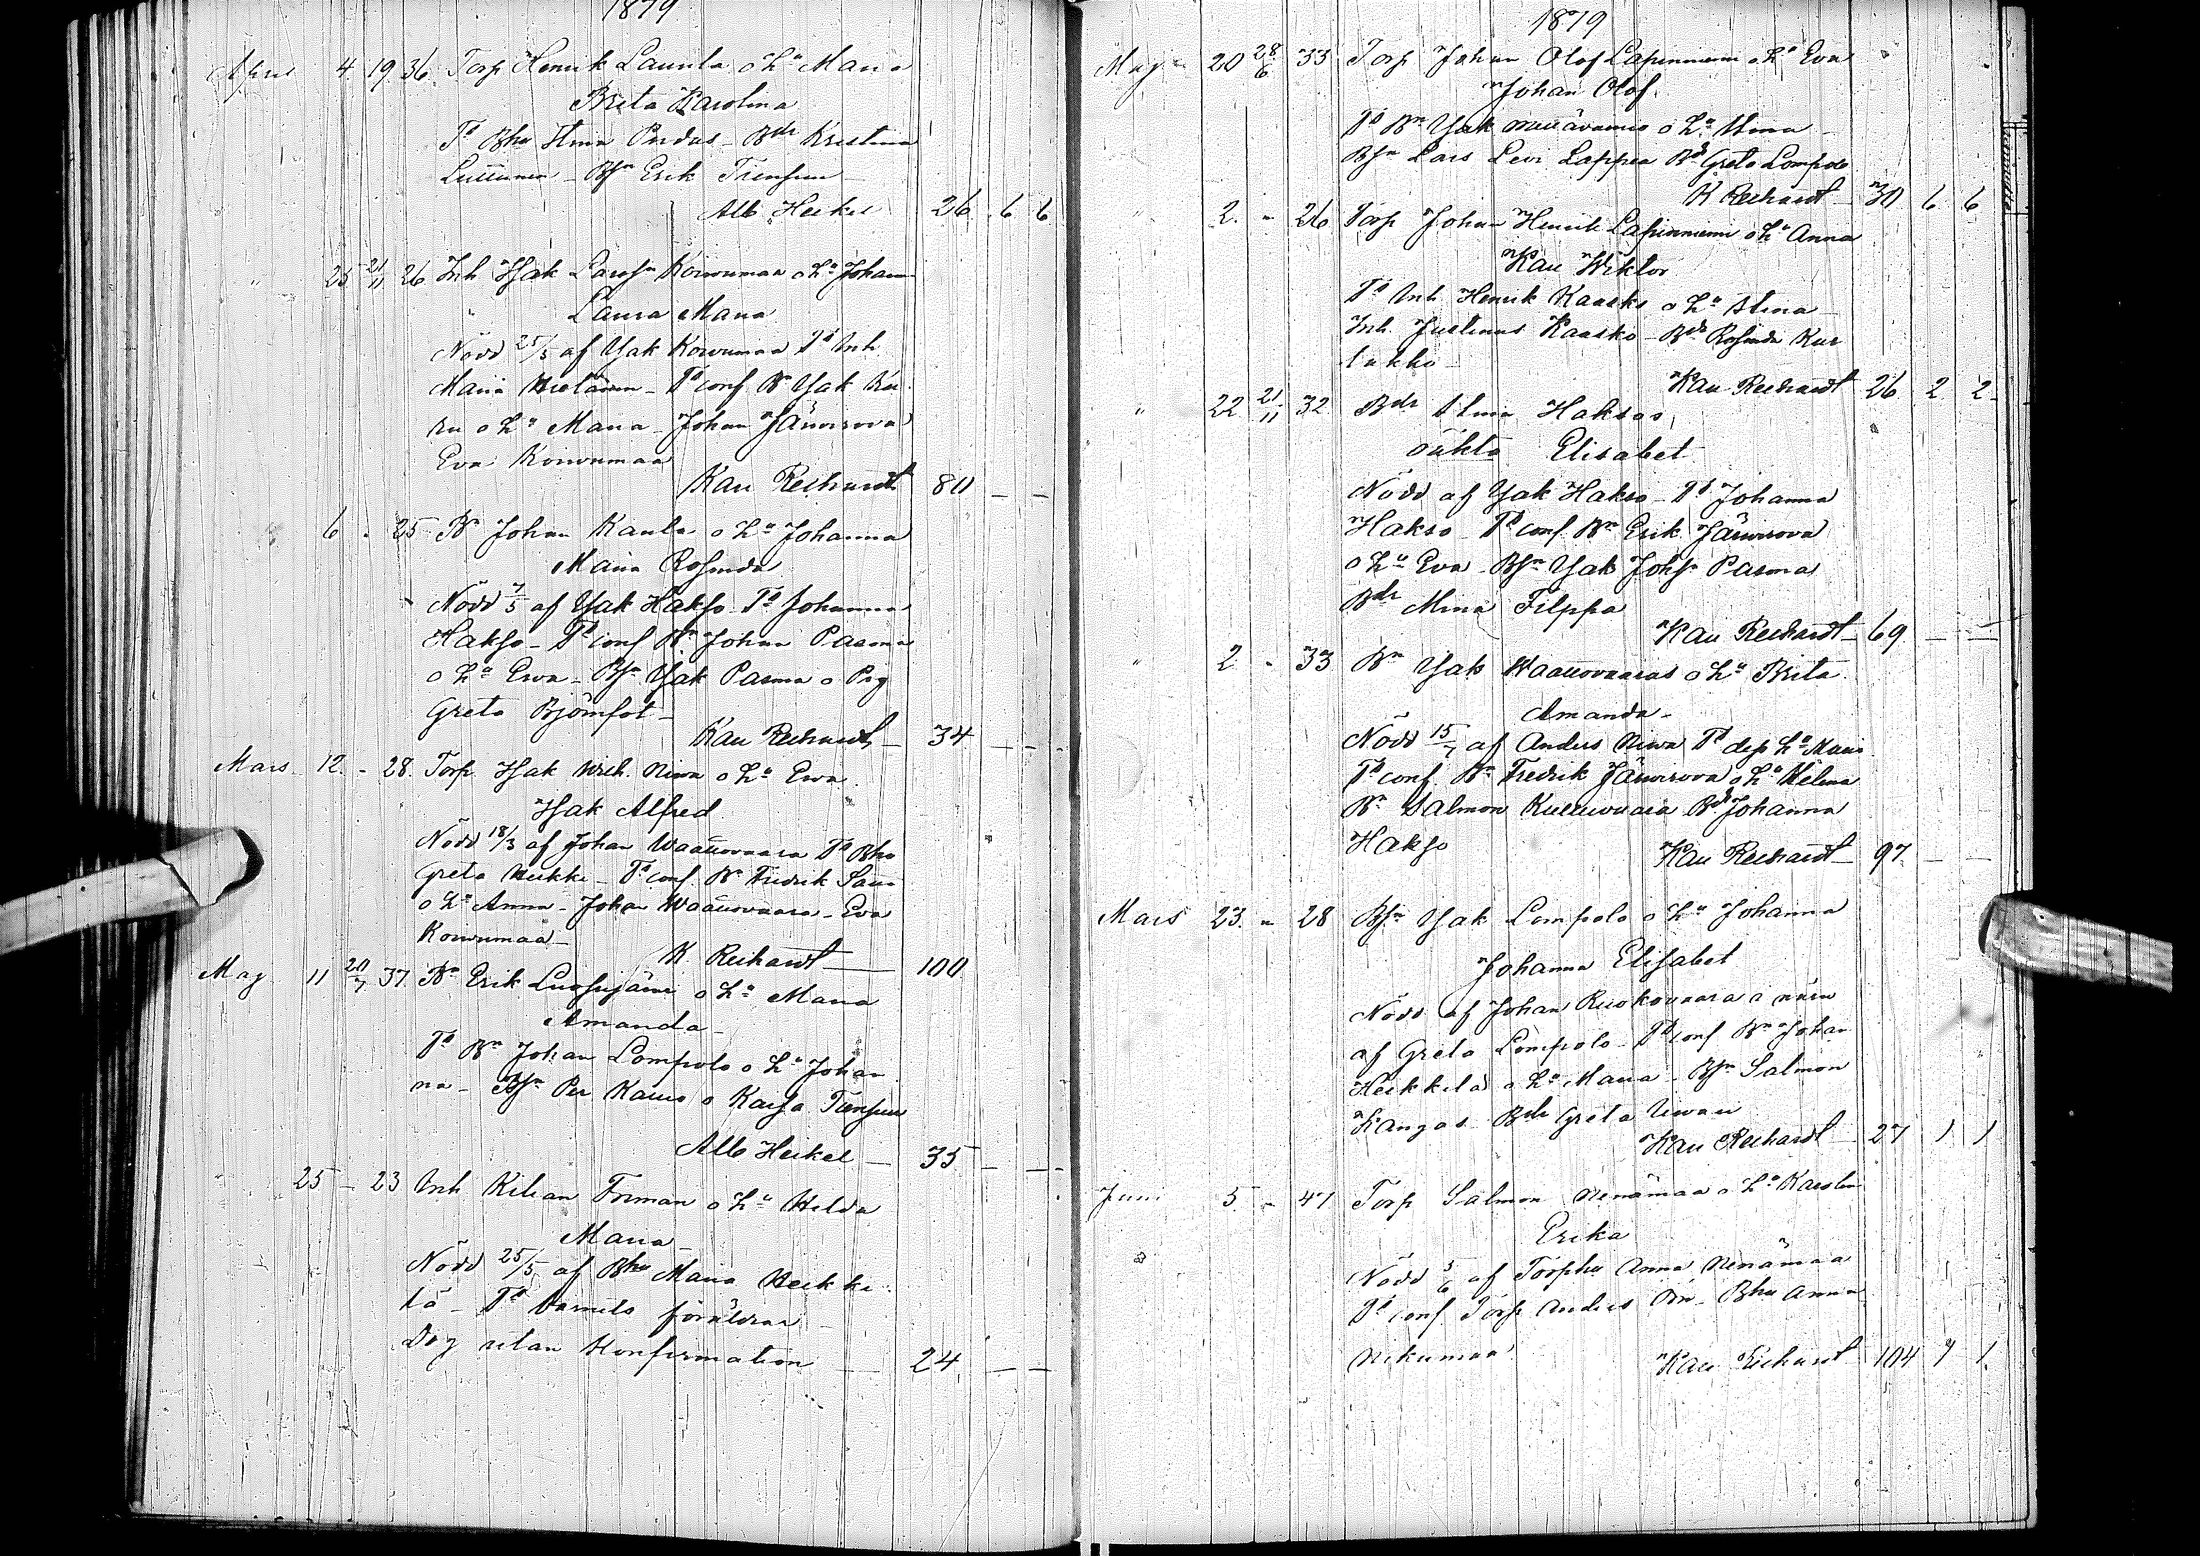 1879
April 4 19 36 Torp Henrik Laurila o Hu Maria
Brita Karolina
Td Bhu Stina Perdus - Bdr Kristina
- Bsn Erik
Alb Heikel 26 6 6
" 25 21/11 26 Inh Isak Larssn Koivumaa o Hu Johanna
Laura Maria
Nödd 25/5 af Isak Koivumaa Td Inh
Maria - Td conf Bn Isak Ku
ru o Hu Maria - Johan Järvirova
Eva Koivumaa
Karl Reichardt 80 - -
6 " 25 Bn Johan Kaula o Hu Johanna
Maria Rosinda
Nödd 7/5 af Isak Hakso Td Johanna
Hakso - Td conf Bn Johan Parma
o Hu Ewa - Bsn Isak Parma o Pig
Greta Björnfot -
Karl Reichardt - 34 - -
Mars 12 - 28 Torp Isak Wilh. Niwa o Hu Ewa
Isak Alfred
Nödd 18/3 af Johan Waattovaara Td Bhu
Greta Heikki - Td conf. Bn Fredrik
o Hu Anna - Johan Waattovaara - Eva
Koivumaa -
K. Reichardt - 100
Maj 11 20/7 37 Bn Erik Luosujärvi o Hu Maria
Amanda -
Td Bn Johan Lompolo o Hu Johan
na - Bsn Per o Kaisa
Alb Heikel - 35 - -
25 - 23 Inh Kilian Forman o Hu Hilda
Maria
Nödd 25/5 af Bhu Maria Heikki
lä - Td barnets föräldrar -
Dog utan Konfirmation - 24 - -
1879
Maj 20 28/6 33 Torp Johan Olof Lapinniemi o Hu Eva
Johan Olof
Td Bn Isak o Hu Stina -
Bsn Lars Levi Lappea Bdr Greta Lompolo
K Reichardt - 30 6 6
" 2 " 26 Torp Johan Henrik Lapinniemi o Hu Anna
Karl Wiktor
Td Inh Henrik Kaarko o Hu Stina -
Inh. Justinus Kaarko - Bdr Rosinda Kur
takko -
Karl Reichardt 26 2 2
" 22 21/11 32 Bdr Stina Haksos
oäkta Elisabet
Nödd af Isak Hakso - Td Johanna
Hakso - Td conf. Bn Erik Järvirova
o Hu Eva - Bsn Isak Johsn Parma
Bdr Mina Filppa
Karl Reichardt - 69 - -
" 2 " 33 Bn Isak Waattovaaras o Hu Brita
Amanda -
Nödd 15/7 af Anders Niwa Td dess Hu Maria
Td conf Bn Fredrik Järvirova o Hu Helena
Bn Salmon Bdr Johanna
Hakso
Karl Reichardt - 97 - -
Mars 23 " 28 Bsn Isak Lompolo o Hu Johanna
Johanna Elisabet
Nödd af Johan Ruokovaara i närv
af Greta Lompolo - Td conf Bn Johan
Heikkilä o Hu Maria - Bsn Salmon
Kangas - Bdr Greta Niwan
Karl Reichardt - 27 1 1
Juni 5 " 47 Torp Salmon Nenämaa o Hu Karolin
Erika
Nödd 5/6 af Torphu Anna Nenämaa
Td conf Torp Anders - Bhu Anna
Karl Reichardt 104 7 1